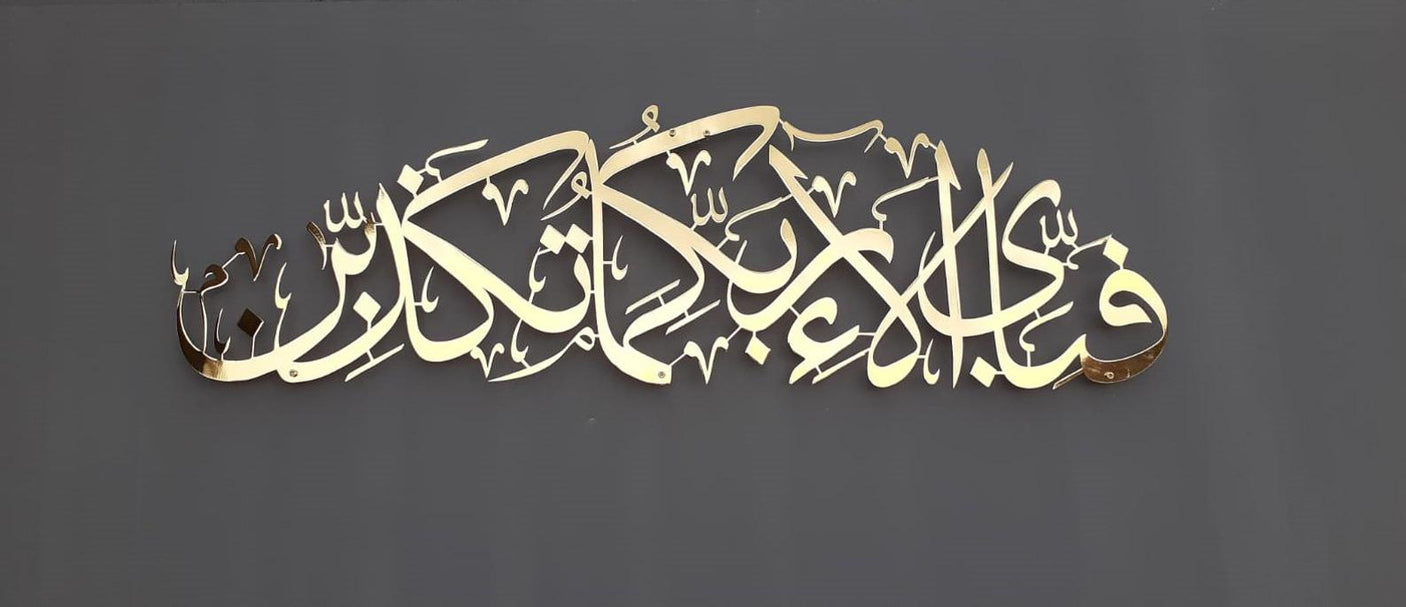 فَبِأَيِّ آلَاءِ رَبِّكُمَا تُكَذِّبَٰنِ